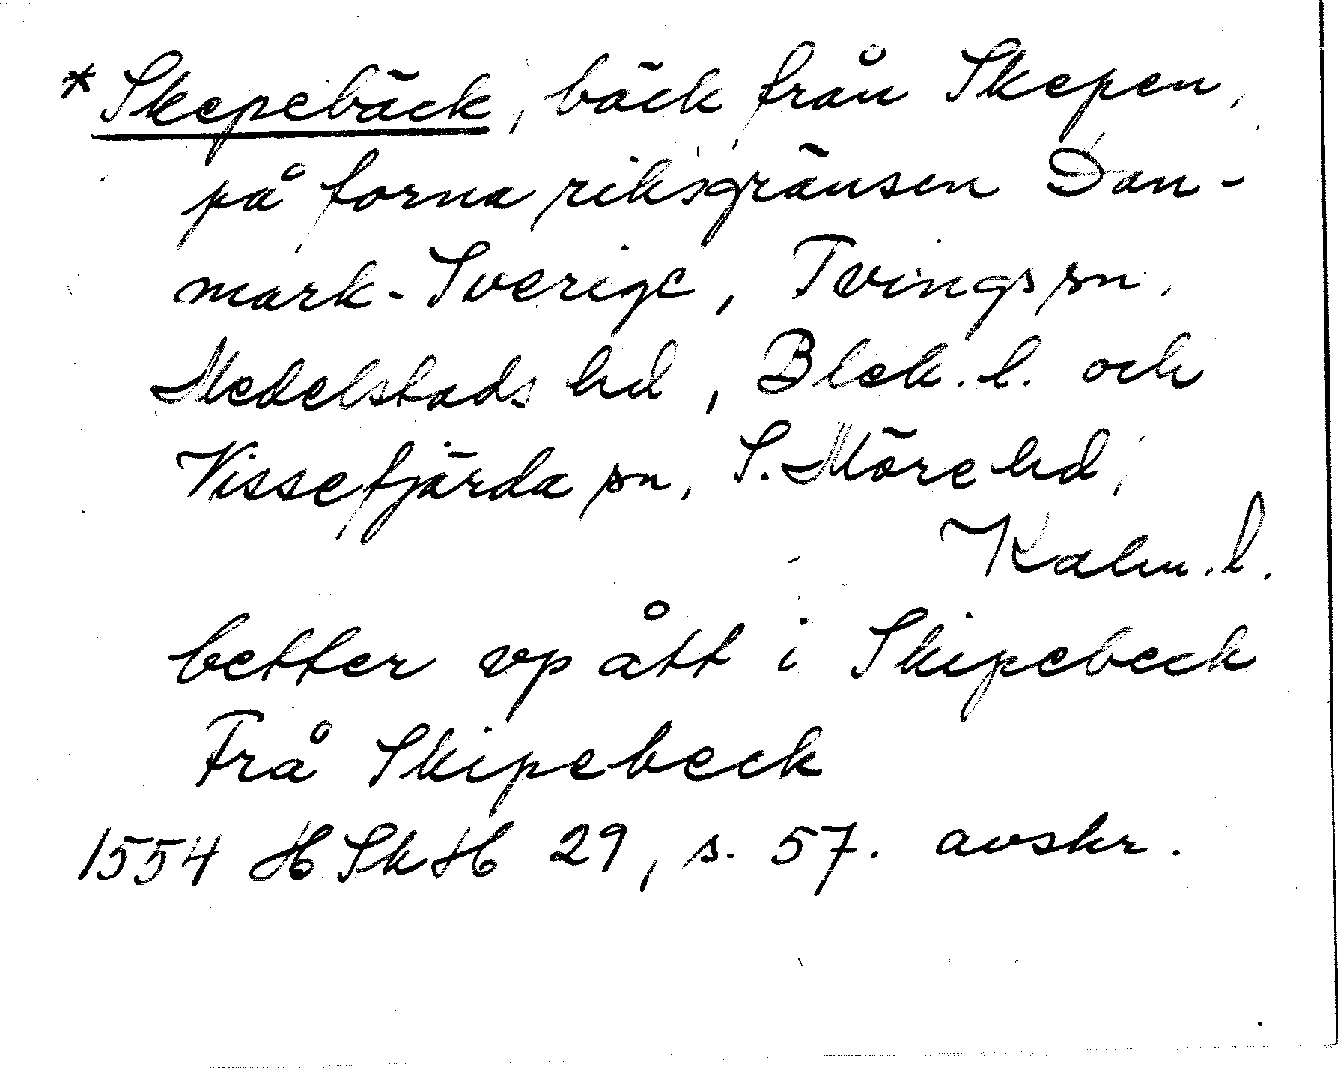 *Skepebäck, bäck från Skepen,
på forna riksgränsen Dan-
mark-Sverige, Tvings sn,
Medelstads hd, Blek. l. och
Vissefjärda sn, S. Möre hd,
Kalm. l.
better vp ått i Skipebeck
Frå Skipebeck
1554 HSkH 29, s. 57. avskr.